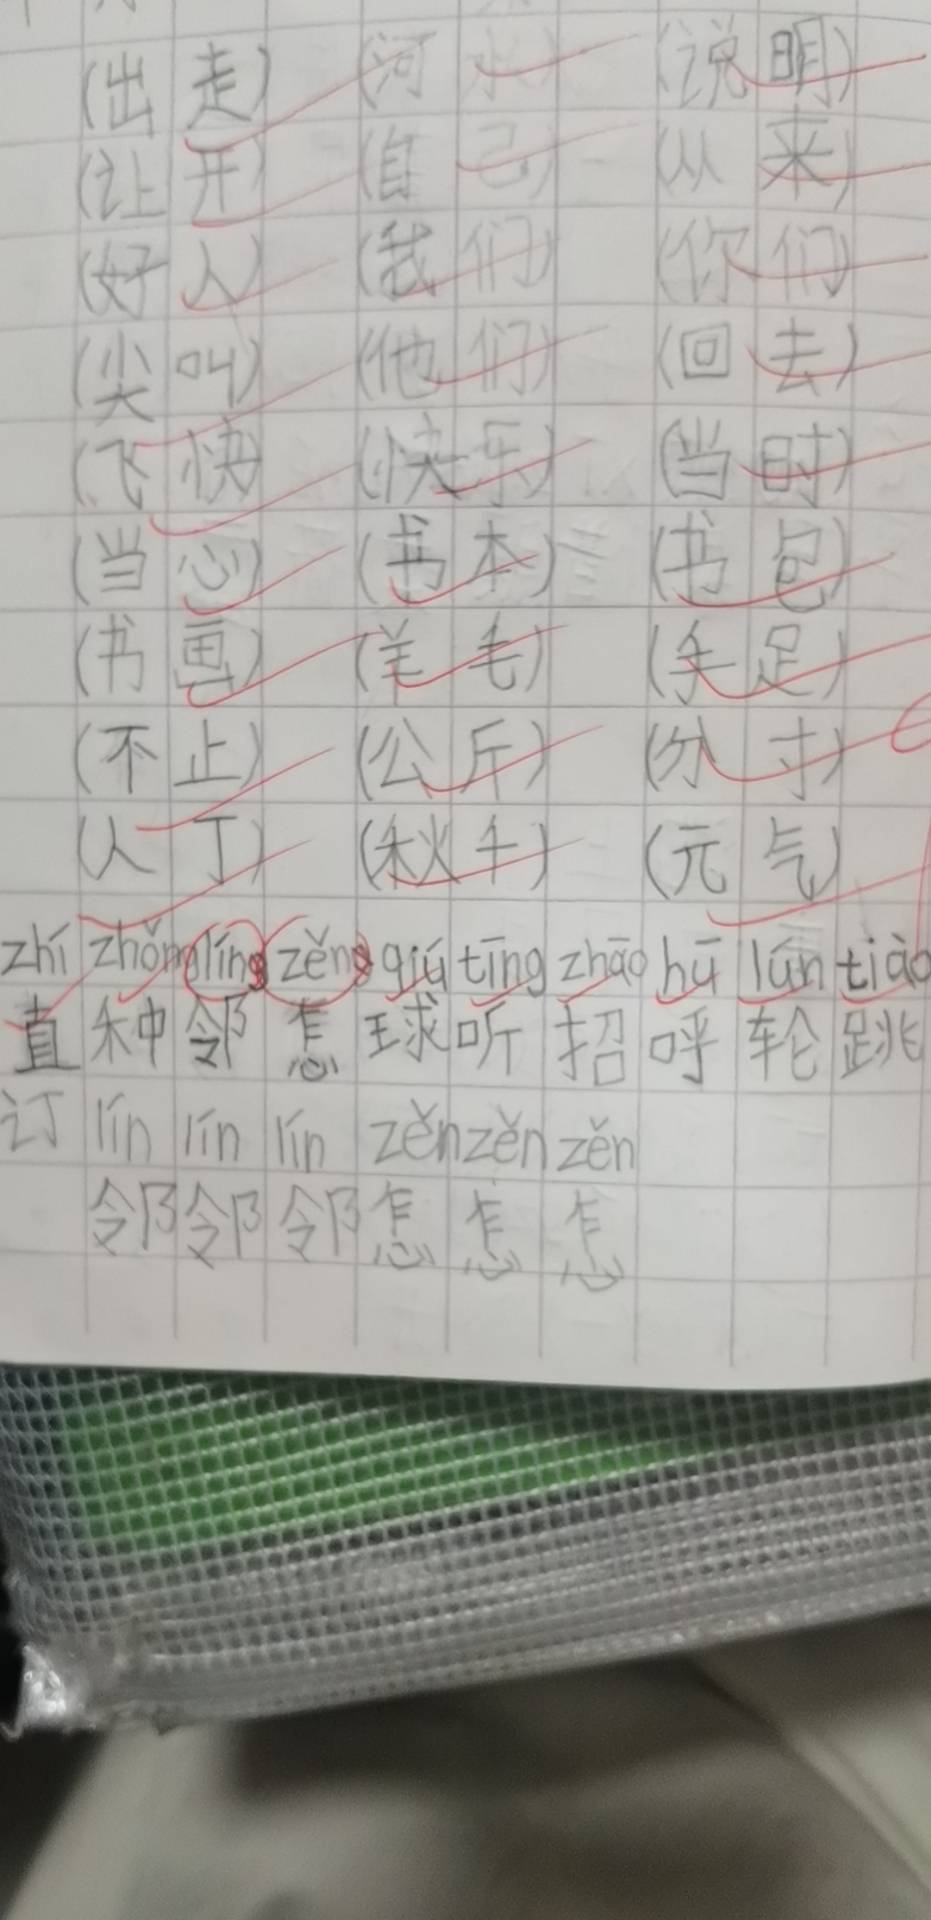 (出走) (河水) (说明)
(让开) (自己) (从来)
(好人) (我们) (你们)
(尖叫) (他们) (回去)
(飞快) (快乐) (当时)
(当心) (书本) (书包)
(书画) (羊毛) (手足)
(不止) (公斤) (分寸)
(人丁) (秋千) (元气)
zhí zhǒng líng zěng qiú tīng zhāo hū lún tiào
直 种 邻 怎 球 听 招 呼 轮 跳
订 lín lín lín zěn zěn zěn
邻 邻 邻 怎 怎 怎